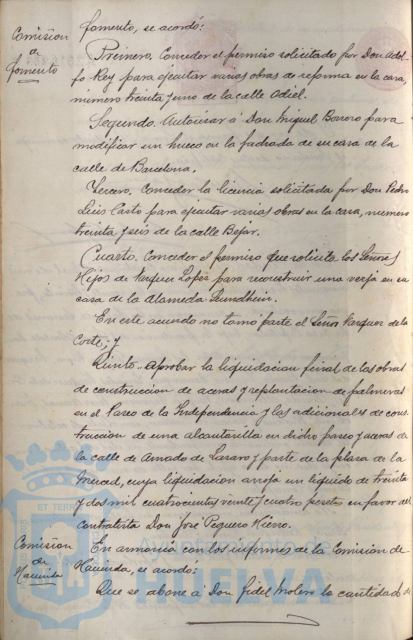 Comisión
de
fomento
fomento, se acordó:
Primero. Conceder el permiso solicitado por Don Adol-
fo Rey para ejecutar varias obras de reforma en la casa,
número treinta y uno de la calle Odiel.
Segundo. Autorizar á Don Miguel Borrero para
modificar un hueco en la fachada de su casa de la
calle de Barcelona.
Tercero. Conceder la licencia solicitada por Don Pedro
Luis Casto para ejecutar varias obras en la casa, número
treinta y seis de la calle Bejar.
Cuarto. Conceder el permiso que solicita los Señores
Hijos de Vazquez Lopez para reconstruir una verja en su
casa de la Alameda Sundheim.
En este acuerdo no tomó parte el Señor Vazquez de la
Corte; y
Quinto. Aprobar la liquidacion final de las obras
de construccion de aceras y replantacion de palmeras
en el Paseo de la Independencia y las adicionales de cons-
truccion de una alcantarilla en dicho paseo y aceras de
la calle de Amado de Lázaro y parte de la plaza de la
Merced, cuya liquidacion arroja un líquido de treinta
y dos mil cuatrocientas veinte y cuatro pesetas en favor del
contratista Don José Peguero
Comisión
de
Hacienda
En armonía con los informes de la Comisión de
Hacienda, se acordó:
Que se abone á Don Fidel Molero la cantidad de
Ayuntamiento de
HUELVA